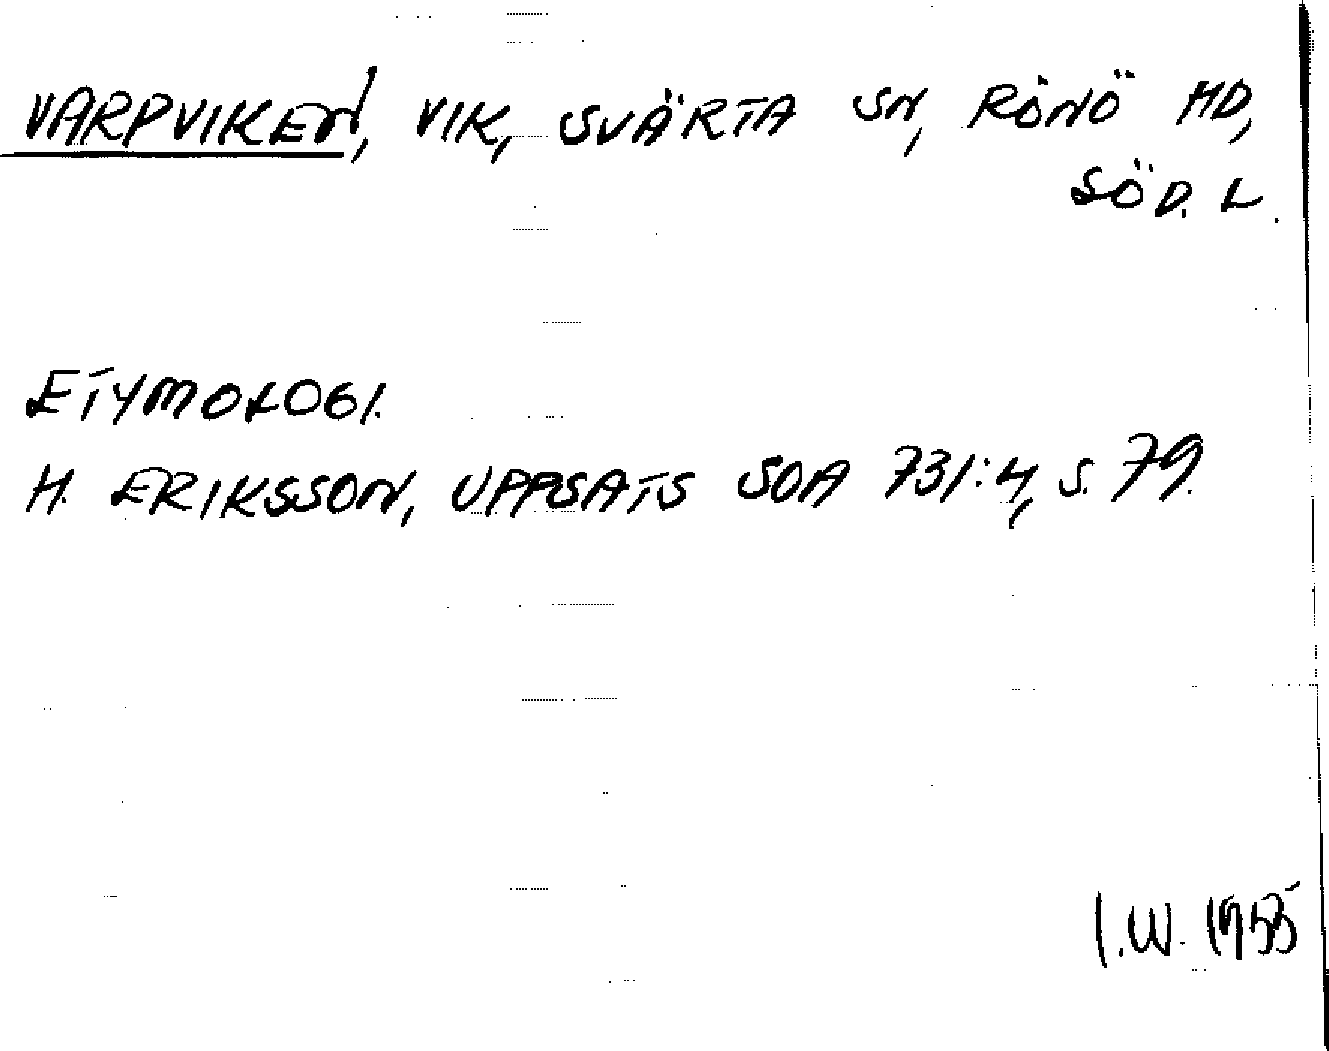 VARPVIKEN, VIK, SVÄRTA SN, RÖNÖ HD,
SÖD. L.
ETYMOLOGI.
H. ERIKSSON, UPPSATS SOA 731:4, S. 79.
I.W. 1955